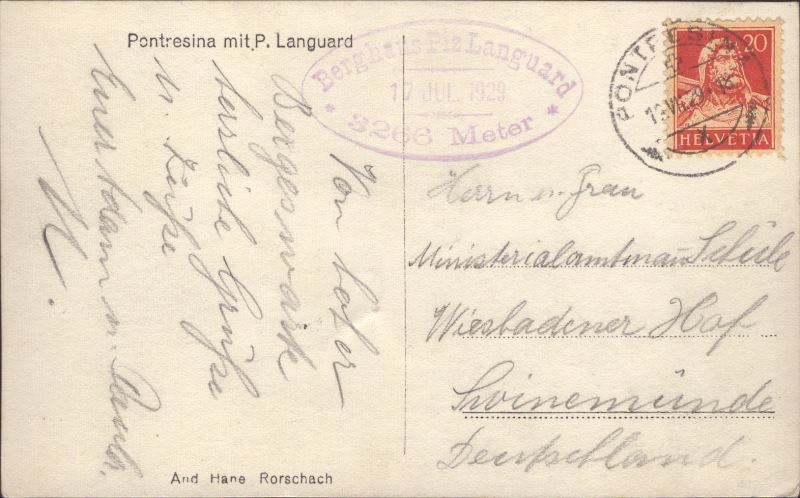 Pontresina mit P. Languard
Berghaus Piz Languard
17 JUL. 1929
* 3266 Meter *
PONTRESINA
20
HELVETIA
Von hoher
Bergeswarte
herzliche Grüße
u. Küsse
Euer
u.
Herrn u. Frau
Ministerialamtmann
Wiesbadener Hof
Swinemünde
Deutschland.
And Hane Rorschach